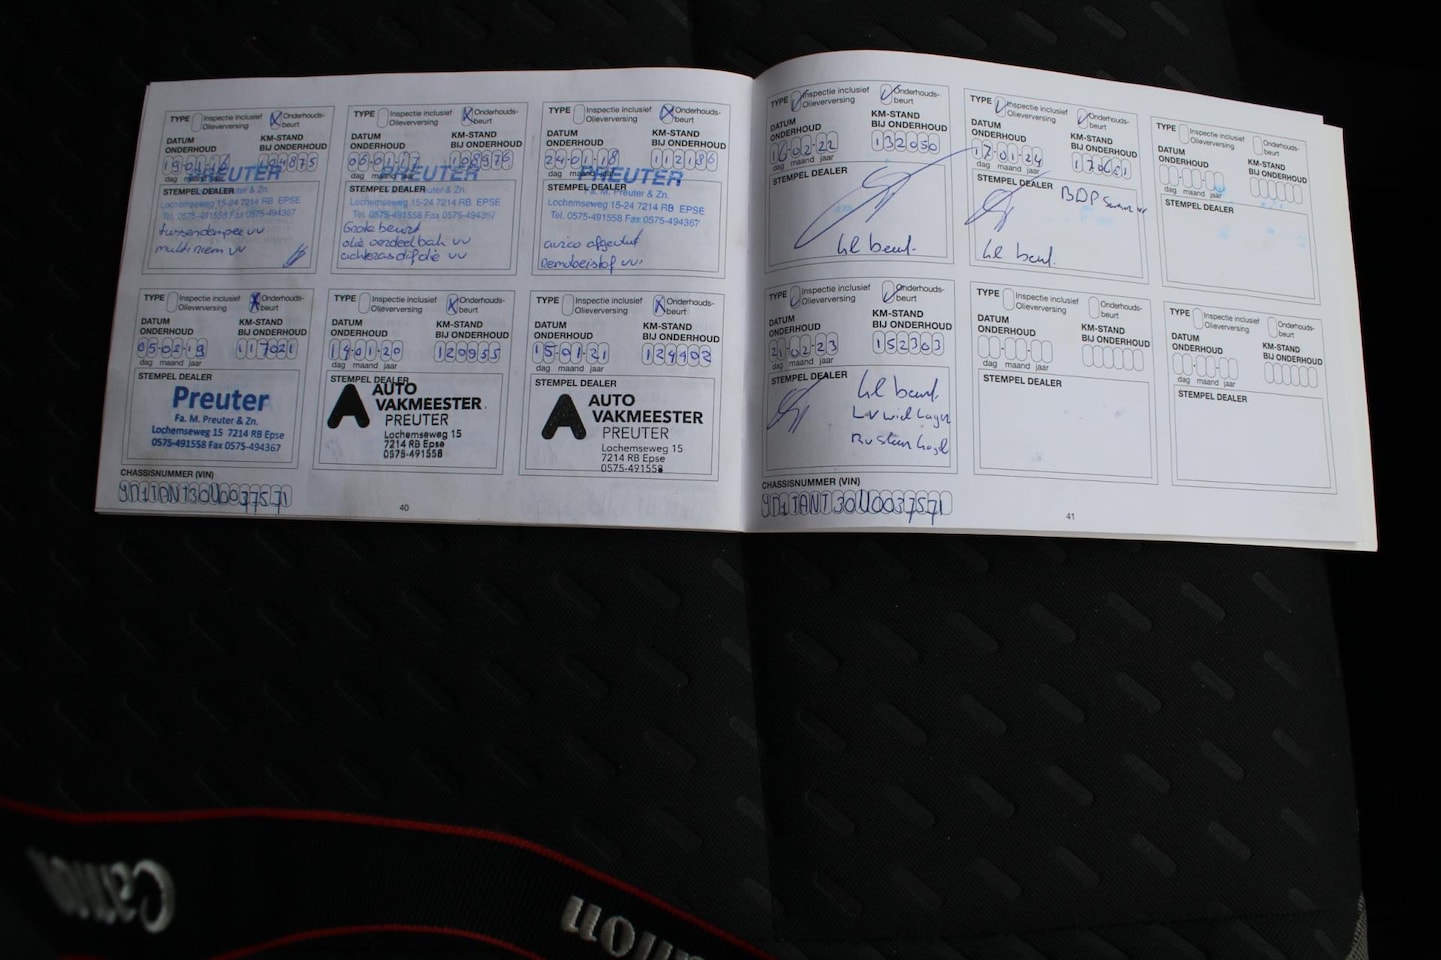 TYPE Inspectie inclusief Olieverversing Onderhouds-beurt
DATUM ONDERHOUD KM-STAND BIJ ONDERHOUD
19-01-16 104875
dag maand jaar
PREUTER
STEMPEL DEALER
Fa. M. Preuter & Zn.
Lochemseweg 15-24 7214 RB EPSE
Tel. 0575-491558 Fax 0575-494367
multiriem VV
TYPE Inspectie inclusief Olieverversing Onderhouds-beurt
DATUM ONDERHOUD KM-STAND BIJ ONDERHOUD
06-01-17 108976
dag maand jaar
PREUTER
STEMPEL DEALER
Fa. M. Preuter & Zn.
Lochemseweg 15-24 7214 RB EPSE
Tel. 0575-491558 Fax 0575-494367
Grote beurt
olie verdeelbak VV
achterasdifolie VV
TYPE Inspectie inclusief Olieverversing Onderhouds-beurt
DATUM ONDERHOUD KM-STAND BIJ ONDERHOUD
24-01-18 112186
dag maand jaar
PREUTER
STEMPEL DEALER
Fa. M. Preuter & Zn.
Lochemseweg 15-24 7214 RB EPSE
Tel. 0575-491558 Fax 0575-494367
airco afgevult
Remvloeistof VV.
TYPE Inspectie inclusief Olieverversing Onderhouds-beurt
DATUM ONDERHOUD KM-STAND BIJ ONDERHOUD
117021
dag maand jaar
STEMPEL DEALER
Preuter
Fa. M. Preuter & Zn.
Lochemseweg 15 7214 RB Epse
0575-491558 Fax 0575-494367
TYPE Inspectie inclusief Olieverversing Onderhouds-beurt
DATUM ONDERHOUD KM-STAND BIJ ONDERHOUD
14-01-20 120955
dag maand jaar
STEMPEL DEALER
A AUTO
VAKMEESTER
PREUTER
Lochemseweg 15
7214 RB Epse
0575-491558
TYPE Inspectie inclusief Olieverversing Onderhouds-beurt
DATUM ONDERHOUD KM-STAND BIJ ONDERHOUD
15-01-21 124402
dag maand jaar
STEMPEL DEALER
A AUTO
VAKMEESTER
PREUTER
Lochemseweg 15
7214 RB Epse
0575-491558
CHASSISNUMMER (VIN)
40
TYPE Inspectie inclusief Olieverversing Onderhouds-beurt
DATUM ONDERHOUD KM-STAND BIJ ONDERHOUD
16-02-22 132050
dag maand jaar
STEMPEL DEALER
beurt.
TYPE Inspectie inclusief Olieverversing Onderhouds-beurt
DATUM ONDERHOUD KM-STAND BIJ ONDERHOUD
17-01-24 170651
dag maand jaar
STEMPEL DEALER
BDP
beurt.
TYPE Inspectie inclusief Olieverversing Onderhouds-beurt
DATUM ONDERHOUD KM-STAND BIJ ONDERHOUD
dag maand jaar
STEMPEL DEALER
TYPE Inspectie inclusief Olieverversing Onderhouds-beurt
DATUM ONDERHOUD KM-STAND BIJ ONDERHOUD
21-02-23 152303
dag maand jaar
STEMPEL DEALER
beurt.
TYPE Inspectie inclusief Olieverversing Onderhouds-beurt
DATUM ONDERHOUD KM-STAND BIJ ONDERHOUD
dag maand jaar
STEMPEL DEALER
TYPE Inspectie inclusief Olieverversing Onderhouds-beurt
DATUM ONDERHOUD KM-STAND BIJ ONDERHOUD
dag maand jaar
STEMPEL DEALER
CHASSISNUMMER (VIN)
41
Canon
Canon